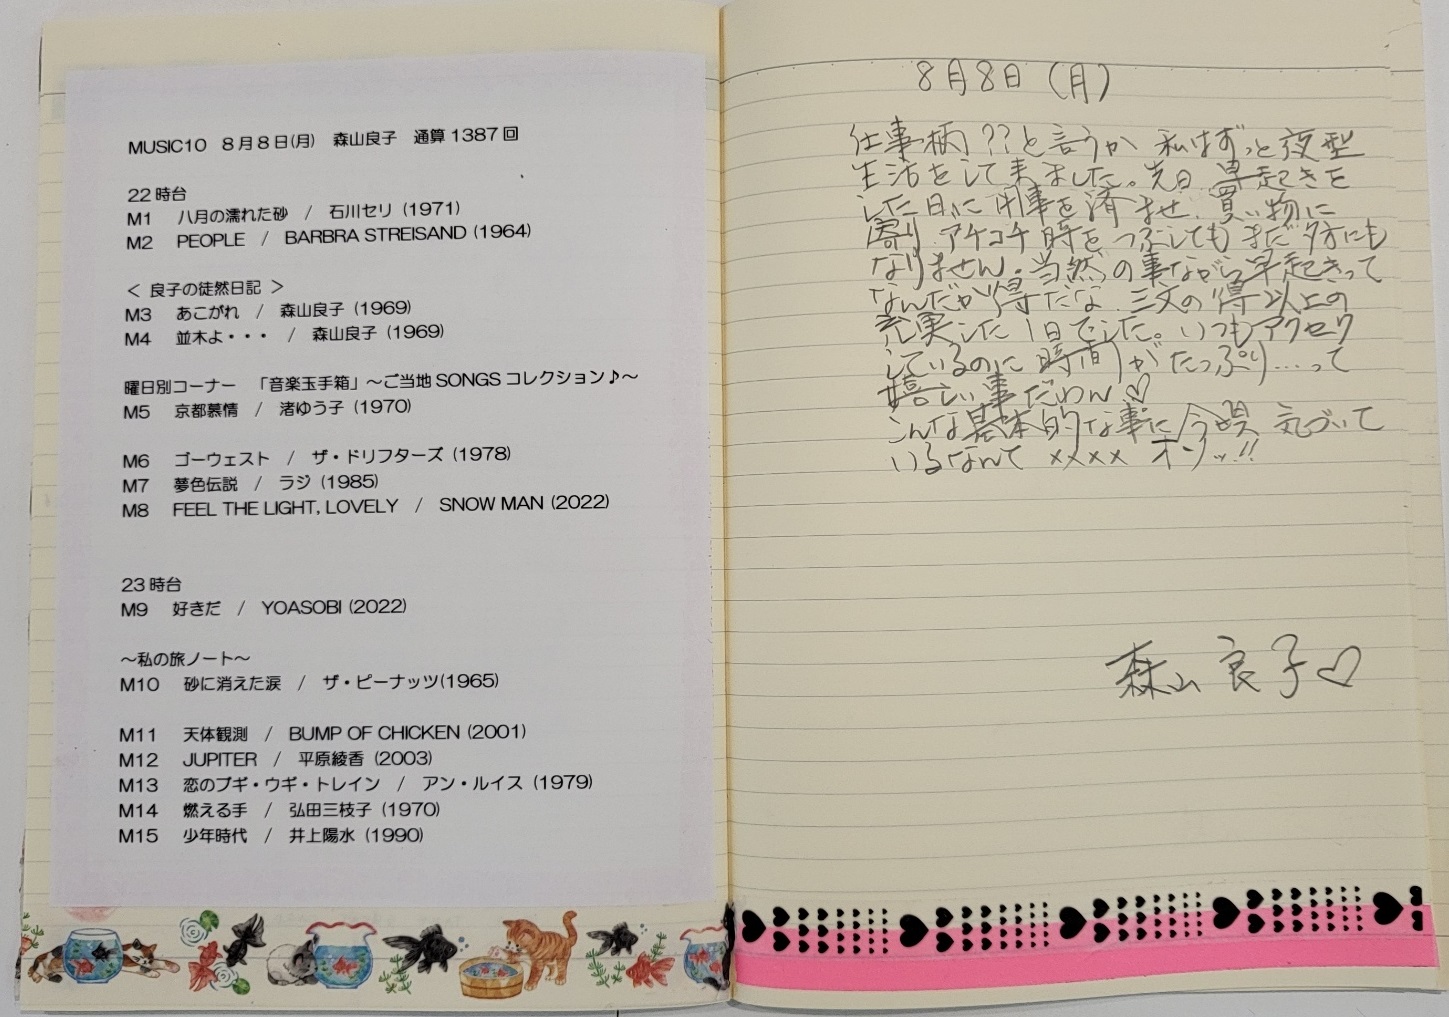 MUSIC10 8月8日(月) 森山良子 通算1387回
22時台
M1 八月の濡れた砂 / 石川セリ (1971)
M2 PEOPLE / BARBRA STREISAND (1964)
< 良子の徒然日記 >
M3 あこがれ / 森山良子 (1969)
M4 並木よ・・・ / 森山良子 (1969)
曜日別コーナー 「音楽玉手箱」～ご当地SONGSコレクション♪～
M5 京都慕情 / 渚ゆう子 (1970)
M6 ゴーウェスト / ザ・ドリフターズ (1978)
M7 夢色伝説 / ラジ (1985)
M8 FEEL THE LIGHT, LOVELY / SNOW MAN (2022)
23時台
M9 好きだ / YOASOBI (2022)
～私の旅ノート～
M10 砂に消えた涙 / ザ・ピーナッツ(1965)
M11 天体観測 / BUMP OF CHICKEN (2001)
M12 JUPITER / 平原綾香 (2003)
M13 恋のブギ・ウギ・トレイン / アン・ルイス (1979)
M14 燃える手 / 弘田三枝子 (1970)
M15 少年時代 / 井上陽水 (1990)
8月8日(月)
仕事柄??と言うか 私はずっと夜型
生活をして来ました。先日 早起きを
した日に用事を済ませ、買い物に
寄り アチコチ時をつぶしてもまだ夕方にも
なりません。当然の事ながら早起きって
なんだか得だな 三文の得以上の
充実した1日でした。いつもアクセク
しているのに時間がたっぷり...って
嬉しい事だわん♡
こんな基本的な事に今頃 気づいて
いるなんて ×××× オソッ!!
森山良子♡